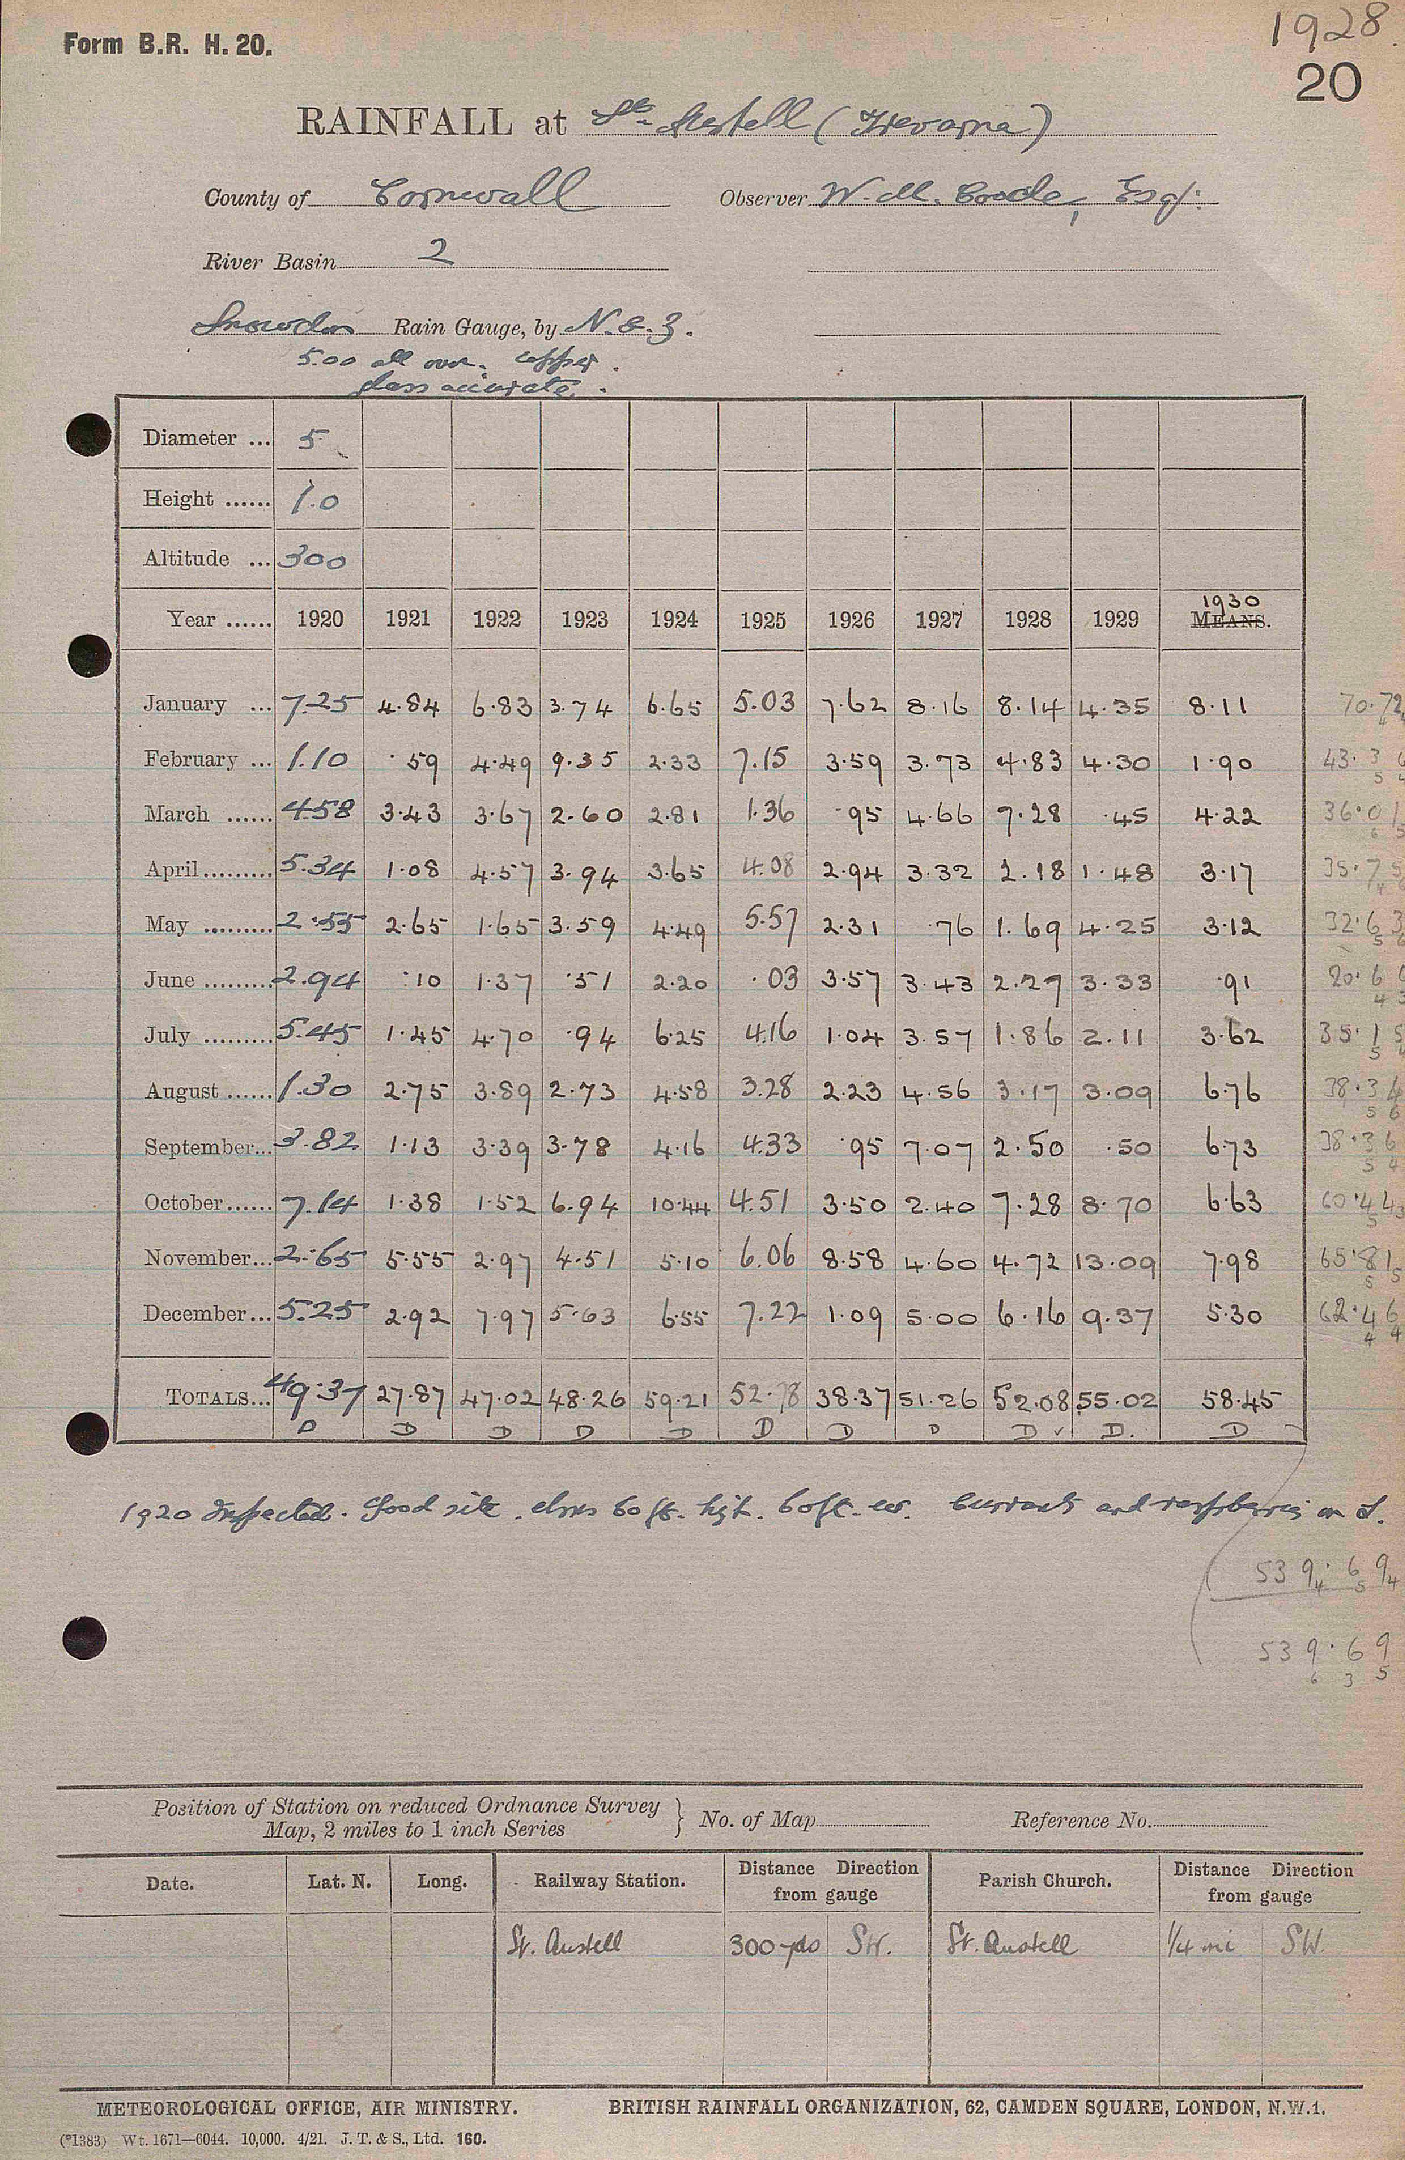 1928.
Form B.R. H. 20.
20
RAINFALL at St. Austell (Trevarna)
County of Cornwall Observer W. M. Coode, Esq.
River Basin 2
Snowdon Rain Gauge, by N. & Z.
5.00 all over. copper.
glass accurate.
Diameter ... 5
Height ...... 1.0
Altitude ... 300
1930
Year ...... 1920 1921 1922 1923 1924 1925 1926 1927 1928 1929 MEANS.
January ... 7.25 4.84 6.83 3.74 6.65 5.03 7.62 8.16 8.14 4.35 8.11 70.72
February ... 1.10 .59 4.49 9.35 2.33 7.15 3.59 3.73 4.83 4.30 1.90 43.36
March ...... 4.58 3.43 3.67 2.60 2.81 1.36 .95 4.66 7.28 .45 4.22 36.01
April ......... 5.34 1.08 4.57 3.94 3.65 4.08 2.94 3.32 2.18 1.48 3.17 35.75
May ......... 2.55 2.65 1.65 3.59 4.49 5.57 2.31 .76 1.69 4.25 3.12 32.63
June ......... 2.94 .10 1.37 .51 2.20 .03 3.57 3.43 2.27 3.33 .91 20.66
July ......... 5.45 1.45 4.70 .94 6.25 4.16 1.04 3.57 1.86 2.11 3.62 35.15
August ...... 1.30 2.75 3.89 2.73 4.58 3.28 2.23 4.56 3.17 3.09 6.76 38.34
September... 3.82 1.13 3.39 3.78 4.16 4.33 .95 7.07 2.50 .50 6.73 38.36
October ...... 7.14 1.38 1.52 6.94 10.44 4.51 3.50 2.40 7.28 8.70 6.63 60.44
November... 2.65 5.55 2.97 4.51 5.10 6.06 8.58 4.60 4.72 13.09 7.98 65.81
December ... 5.25 2.92 7.97 5.63 6.55 7.22 1.09 5.00 6.16 9.37 5.30 62.46
TOTALS... 49.37 27.87 47.02 48.26 59.21 52.78 38.37 51.26 52.08 55.02 58.45
D D D D D D D D D ✓ D. D
1920 Inspected. Good site. elms 60 ft. high. 60 ft. w. Currants and raspberries on S.
539.69
539.69
Position of Station on reduced Ordnance Survey
Map, 2 miles to 1 inch Series } No. of Map Reference No.
Date. Lat. N. Long. Railway Station. Distance Direction from gauge Parish Church. Distance Direction from gauge
St. Austell 300 yds SW. St. Austell 1/4 mi SW.
METEOROLOGICAL OFFICE, AIR MINISTRY. BRITISH RAINFALL ORGANIZATION, 62, CAMDEN SQUARE, LONDON, N.W.1.
(*1383) Wt. 1671—6044. 10,000. 4/21. J. T. & S., Ltd. 160.